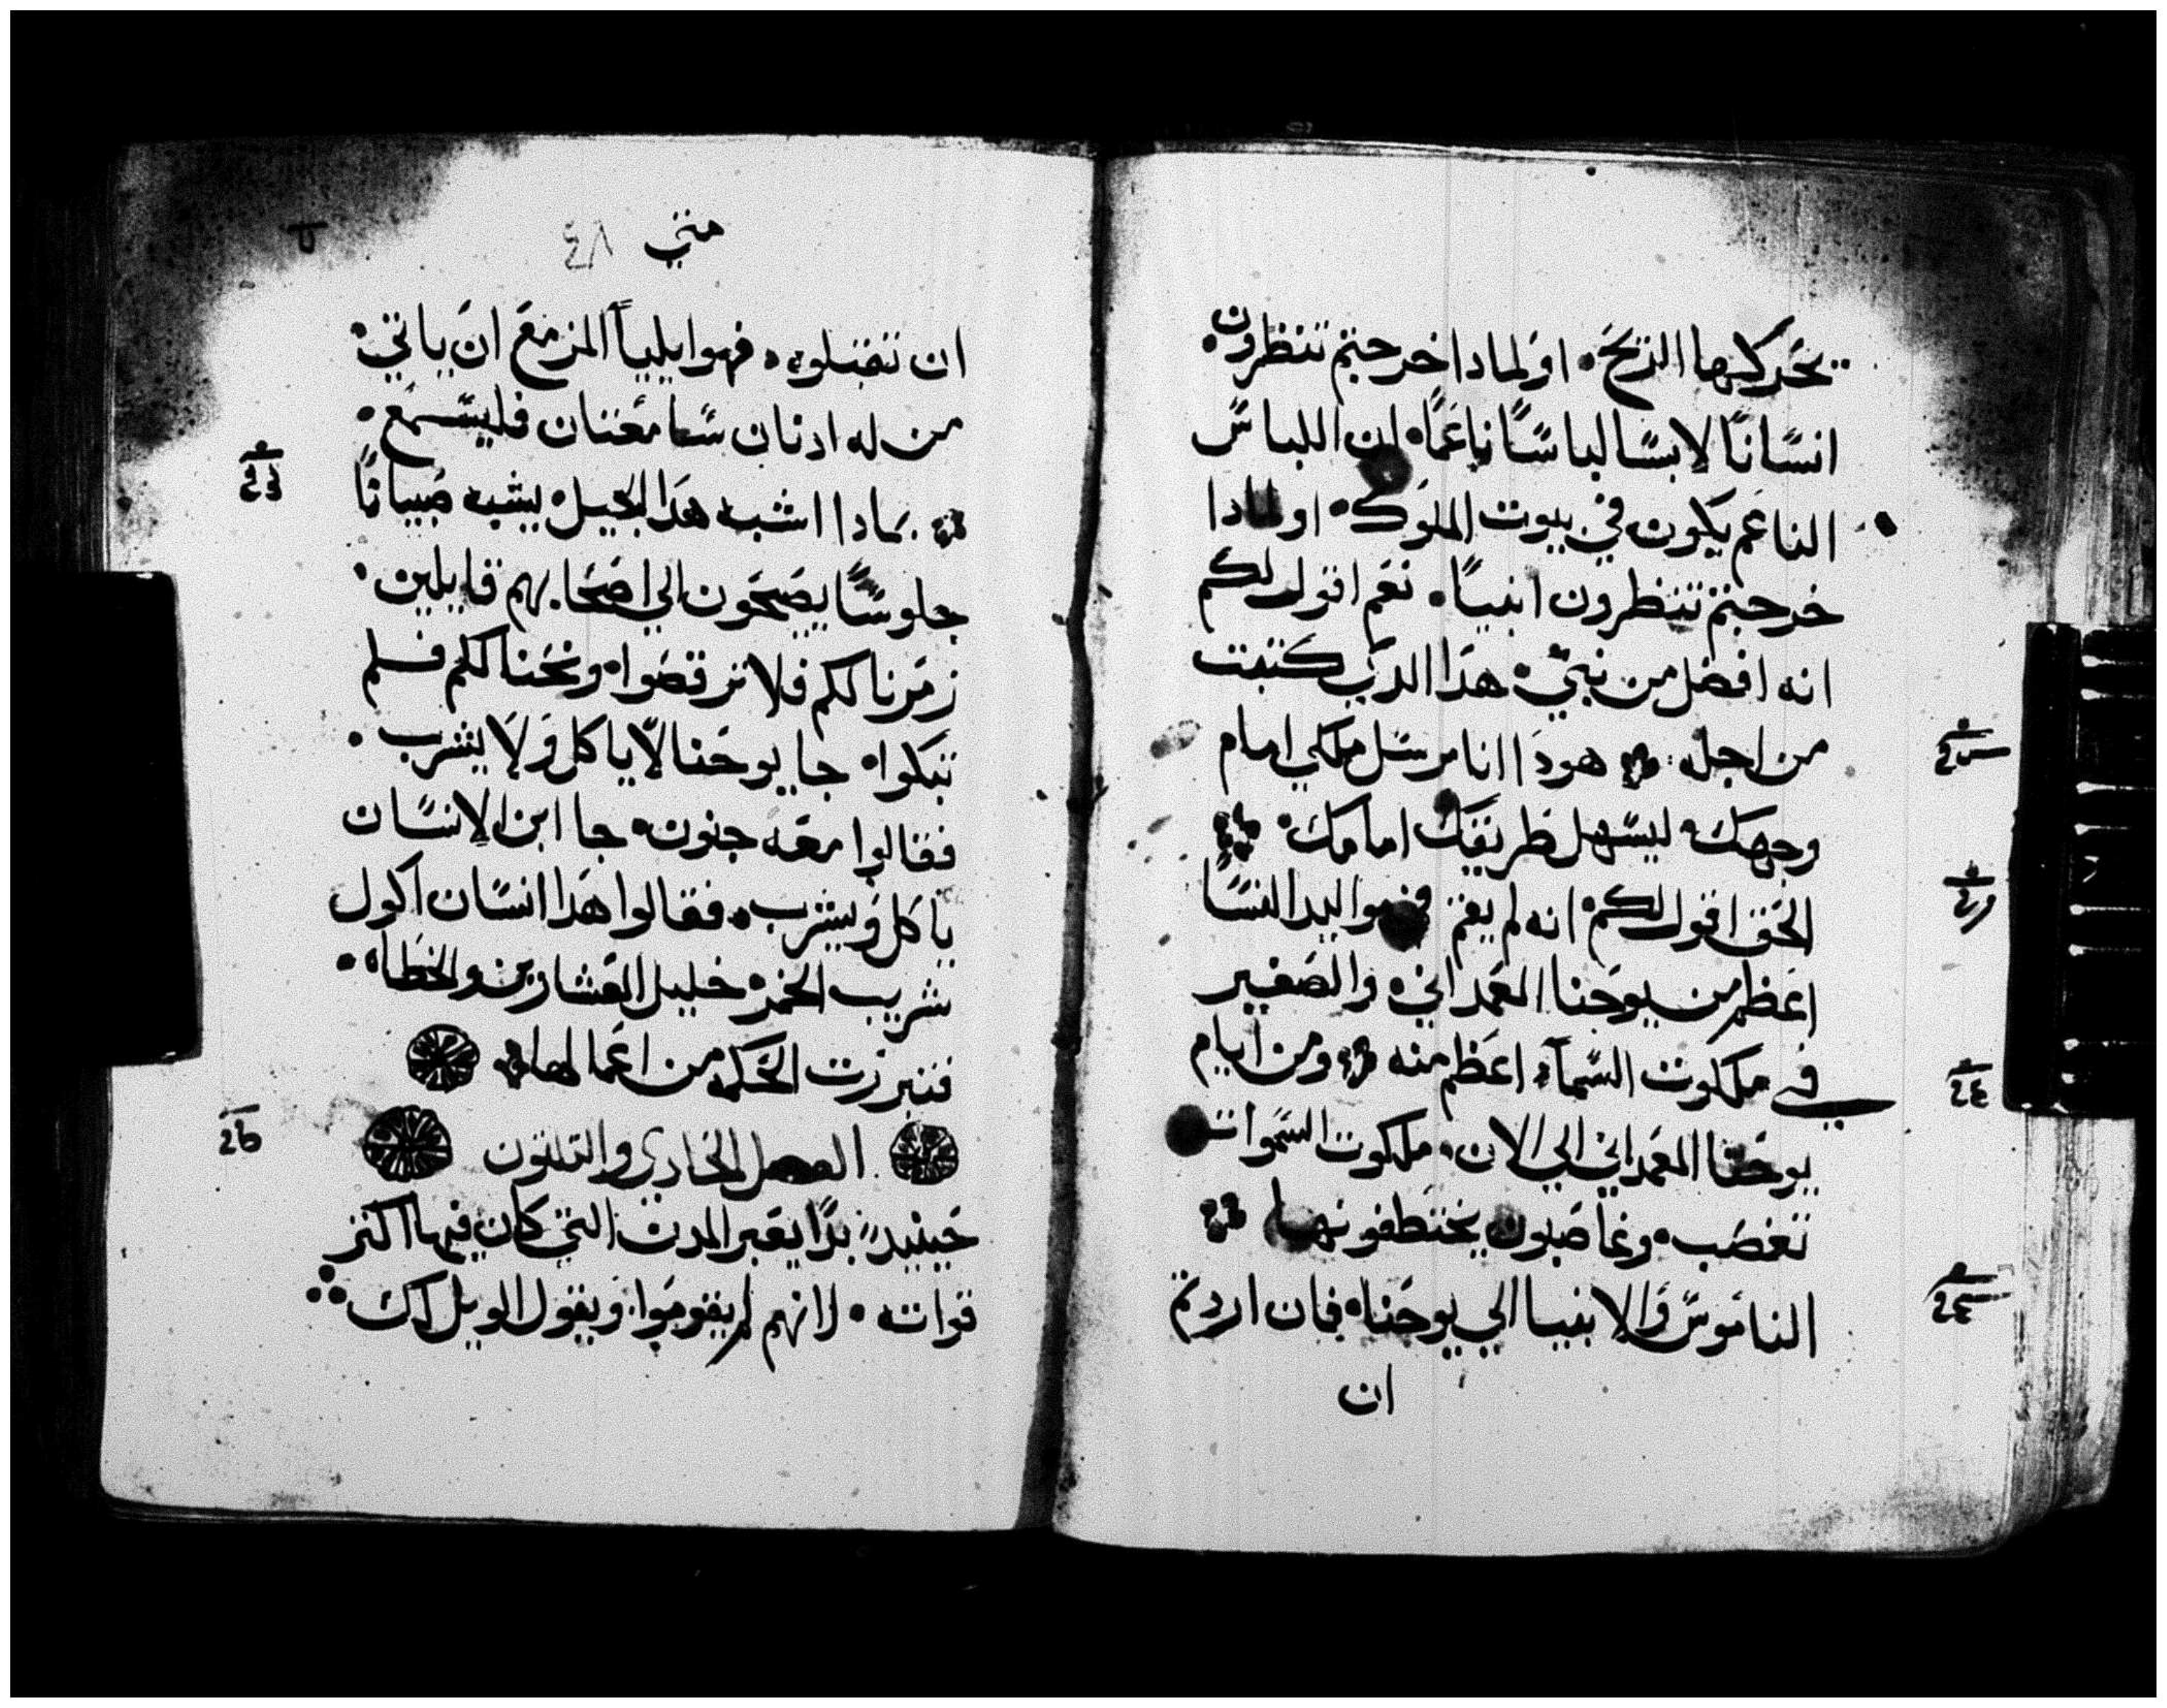 تحركها الريح، اولمادا خرجتم تنظرون
انسانًا لابسًا لباسًا ناعمًا، ان اللباس
الناعم يكون في بيوت الملوك، اولمادا
خرجتم تنظرون انبيًا، نعم اقول لكم
انه افضل من نبي، هدا الدي كتبت
من اجله، هودا انا مرسل ملكي امام
وجهك، ليسهل طريقك امامك،
الحق اقول لكم، انه لم يقم في مواليد النسا
اعظم من يوحنا المعمداني، والصغير
في ملكوت السمآ، اعظم منه ومن ايام
يوحنا المعمداني الي الان، ملكوت السموات
تغصب، وغاصبون يختطفونها
الناموس والانبيا الي يوحنا، فان اردتم
ان
متي ٤٨
ان تقبلوه، فهوا يليا المزمع ان ياتي،
من له ادنان سامعتان فليسمع،
بمادا اشبه هدا الجيل، يشبه صبيانًا
جلوسًا يصيحون الي اصحابهم قايلين،
زمرنا لكم فلا ترقصوا، ونحنا لكم فلم
تبكوا، جا يوحنا لا ياكل ولا يشرب،
فقالوا معه جنون، جا ابن الانسان
ياكل ويشرب، فقالوا هدا انسان اكول
شريب الخمر، خليل العشارين والخطاه،
فتبررت الحكمه من اعمالها،
الفصل الحادي والتلتون
حينيد بدا يعير المدن التي كان فيها اكتر
قواته، لانهم لم يتوبوا، ويقول الويل لك